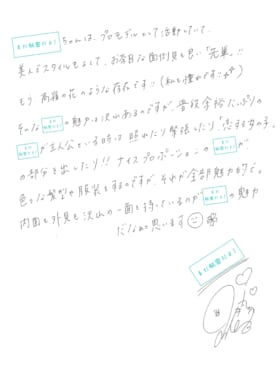 まだ秘密だよ! ちゃんは、プロモデルとして活動していて、
美人でスタイルもよくて、お茶目な面倒見も良い「先輩」!!
もう高嶺の花のような存在です!! (私も憧れです!!)
そんな まだ秘密だよ! の魅力は沢山あるのですが、普段余裕たっぷりの
まだ秘密だよ! が主人公といる時は照れたり緊張したり、「恋する女の子」
の部分を出したり!! ナイスプロポーションの まだ秘密だよ! が
色々な髪型や服装をするのですが、それが全部魅力的で。
内面も外見も沢山の一面を持っているのが まだ秘密だよ! の魅力
だなぁと思います
まだ秘密だよ!